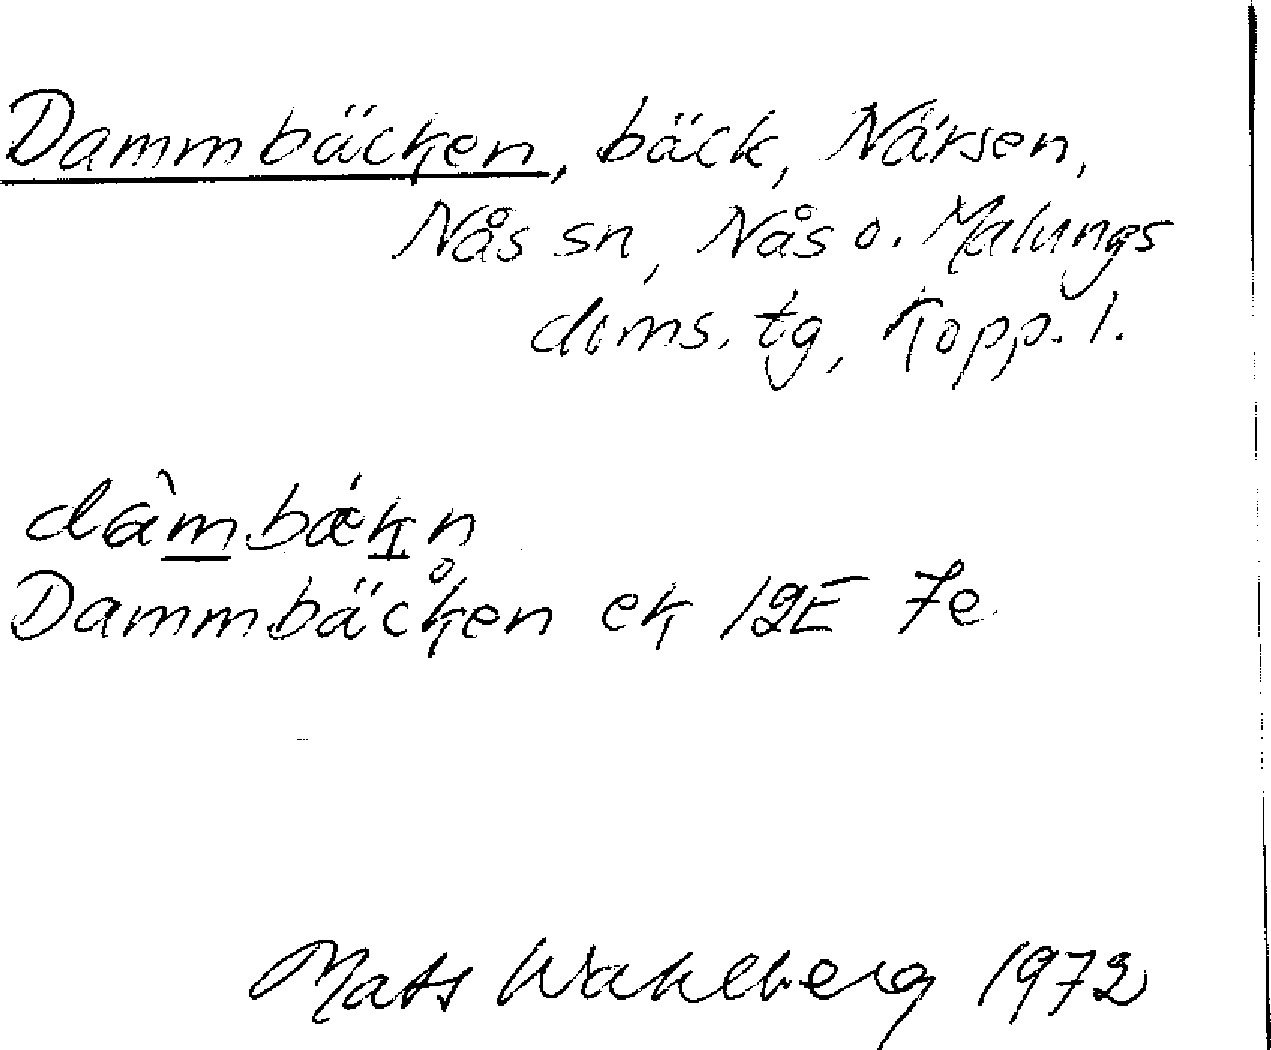 Dammbäcken, bäck, Närsen,
Nås sn, Nås o. Malungs
doms. tg, Kopp. l.
Dammbäcken ek 12E 7e
Mats Wahlberg 1972